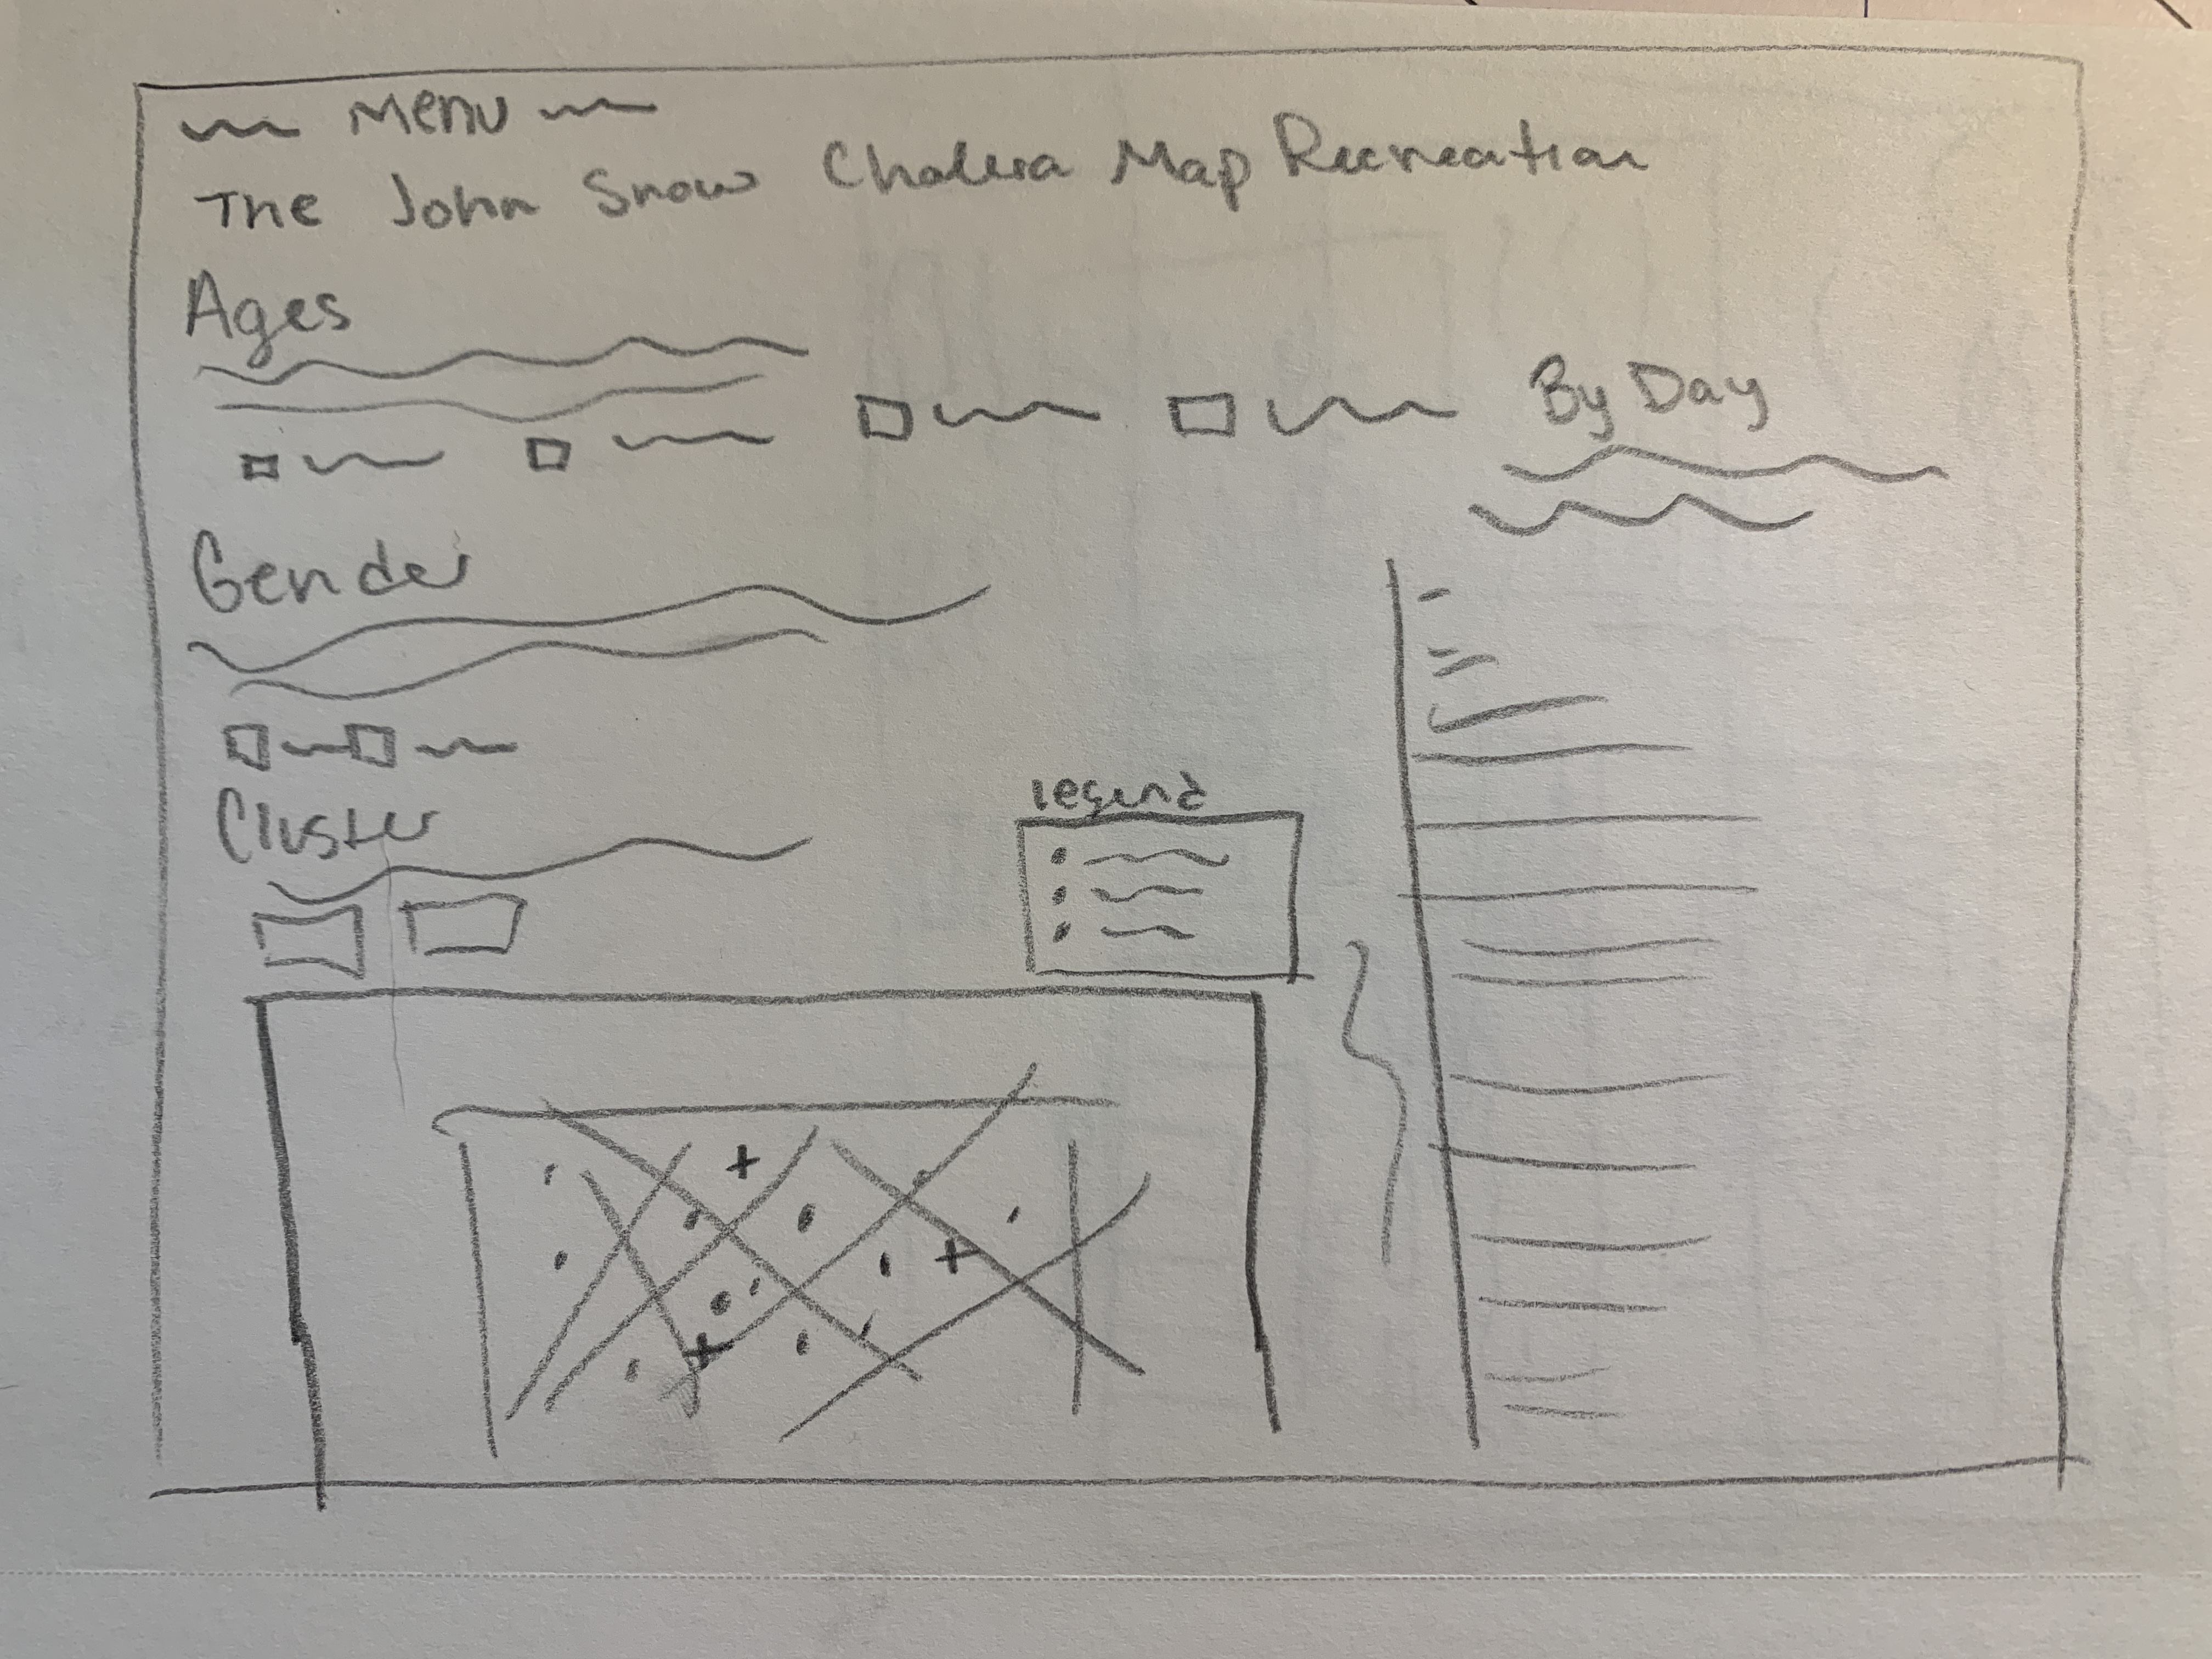 Menu
The John Snow Cholera Map Recreation
Ages
By Day
Gender
legend
Cluster